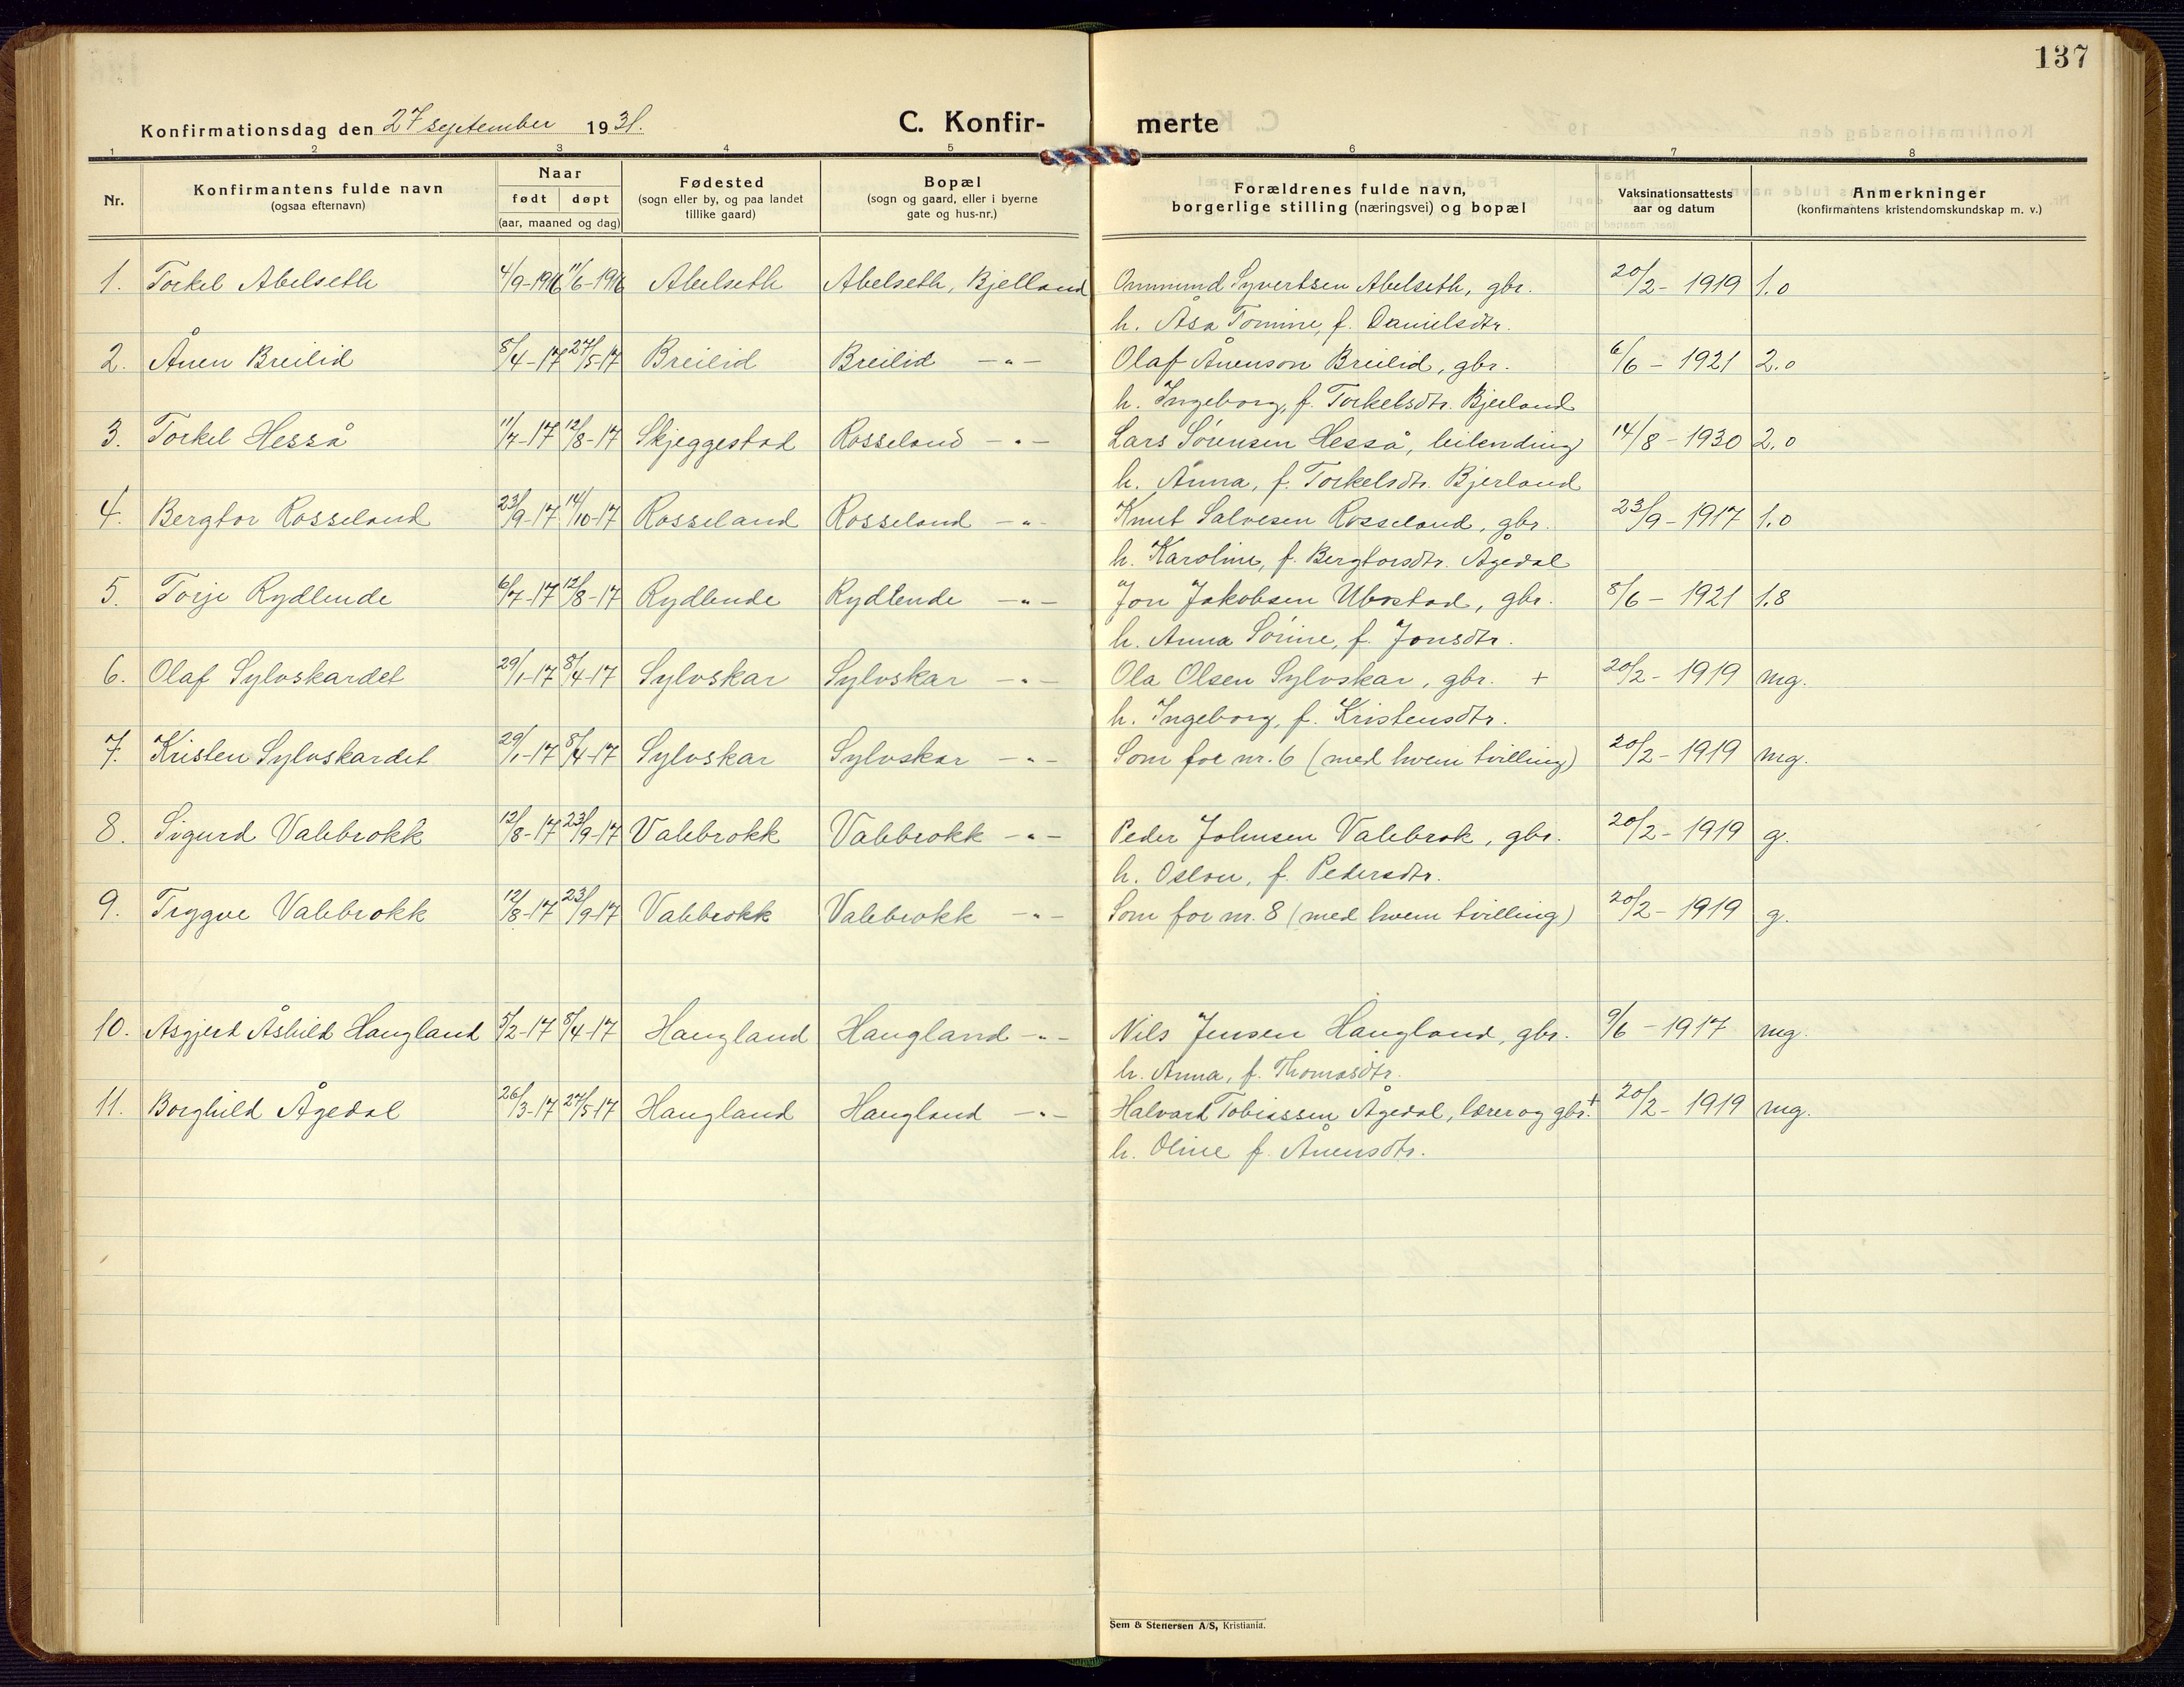 137
Konfirmationsdag den 27 september 1931.
C. Konfir- merte
1 2 3 4 5 6 7 8
Nr.
Konfirmantens fulde navn
(ogsaa efternavn)
Naar
født døpt
(aar, maaned og dag)
Fødested
(sogn eller by, og paa landet
tillike gaard)
Bopæl
(sogn og gaard, eller i byerne
gate og hus-nr.)
Forældrenes fulde navn,
borgerlige stilling (næringsvei) og bopæl
Vaksinationsattests
aar og datum
Anmerkninger
(konfirmantens kristendomskundskap m. v.)
1. Torkel Abelseth 4/9-1916 11/6-1916 Abelseth Abelseth, Bjelland Ommund Syvertsen Abelseth, gbr. 20/2 - 1919 1.0
h. Åsa Tomine, f. Danielsdtr.
2. Ånen Breilid 8/4-17 27/5-17 Breilid Breilid -"- Olaf Ånenson Breilid, gbr. 6/6 - 1921 2.0
h. Ingeborg, f. Torkelsdtr. Bjerland
3. Torkel Hesså 11/7-17 12/8-17 Skjeggestad Rosseland -"- Lars Sørensen Hesså, leilending 14/8 - 1930 2.0
h. Anna, f. Torkelsdtr. Bjerland
4. Bergtor Rosseland 23/9-17 14/10-17 Rosseland Rosseland -"- Knut Salvesen Rosseland, gbr. 23/9 - 1917 1.0
h. Karoline, f. Bergtorsdtr. Ågedal
5. Torje Rydlende 6/7-17 12/8-17 Rydlende Rydlende -"- Jon Jakobsen Ubostad, gbr. 8/6 - 1921 1.8
h. Anna Sørine, f. Jonsdtr.
6. Olaf Sylvskardet 29/1-17 8/4-17 Sylvskar Sylvskar -"- Ola Olsen Sylvskar, gbr. + 20/2 - 1919 mg.
h. Ingeborg, f. Kristensdtr.
7. Kristen Sylvskardet 29/1-17 8/4-17 Sylvskar Sylvskar -"- Som for nr. 6 (med hvem tvilling) 20/2 - 1919 mg.
8. Sigurd Valebrokk 12/8-17 23/9-17 Valebrokk Valebrokk -"- Peder Johnsen Valebrok, gbr. 20/2 - 1919 g.
h. Oslou, f. Pedersdtr.
9. Trygve Valebrokk 12/8-17 23/9-17 Valebrokk Valebrokk -"- Som for nr. 8 (med hvem tvilling) 20/2 - 1919 g.
10. Asgjerd Åshild Haugland 5/2-17 8/4-17 Haugland Haugland -"- Nils Jensen Haugland, gbr. 9/6 - 1917 mg.
h. Anna, f. Thomasdtr.
11. Borghild Ågedal 26/3-17 27/5-17 Haugland Haugland -"- Halvard Tobiassen Ågedal, lærer og gbr. + 20/2 - 1919 mg.
h. Oline f. Ånensdtr.
Sem & Stenersen A/S, Kristiania.